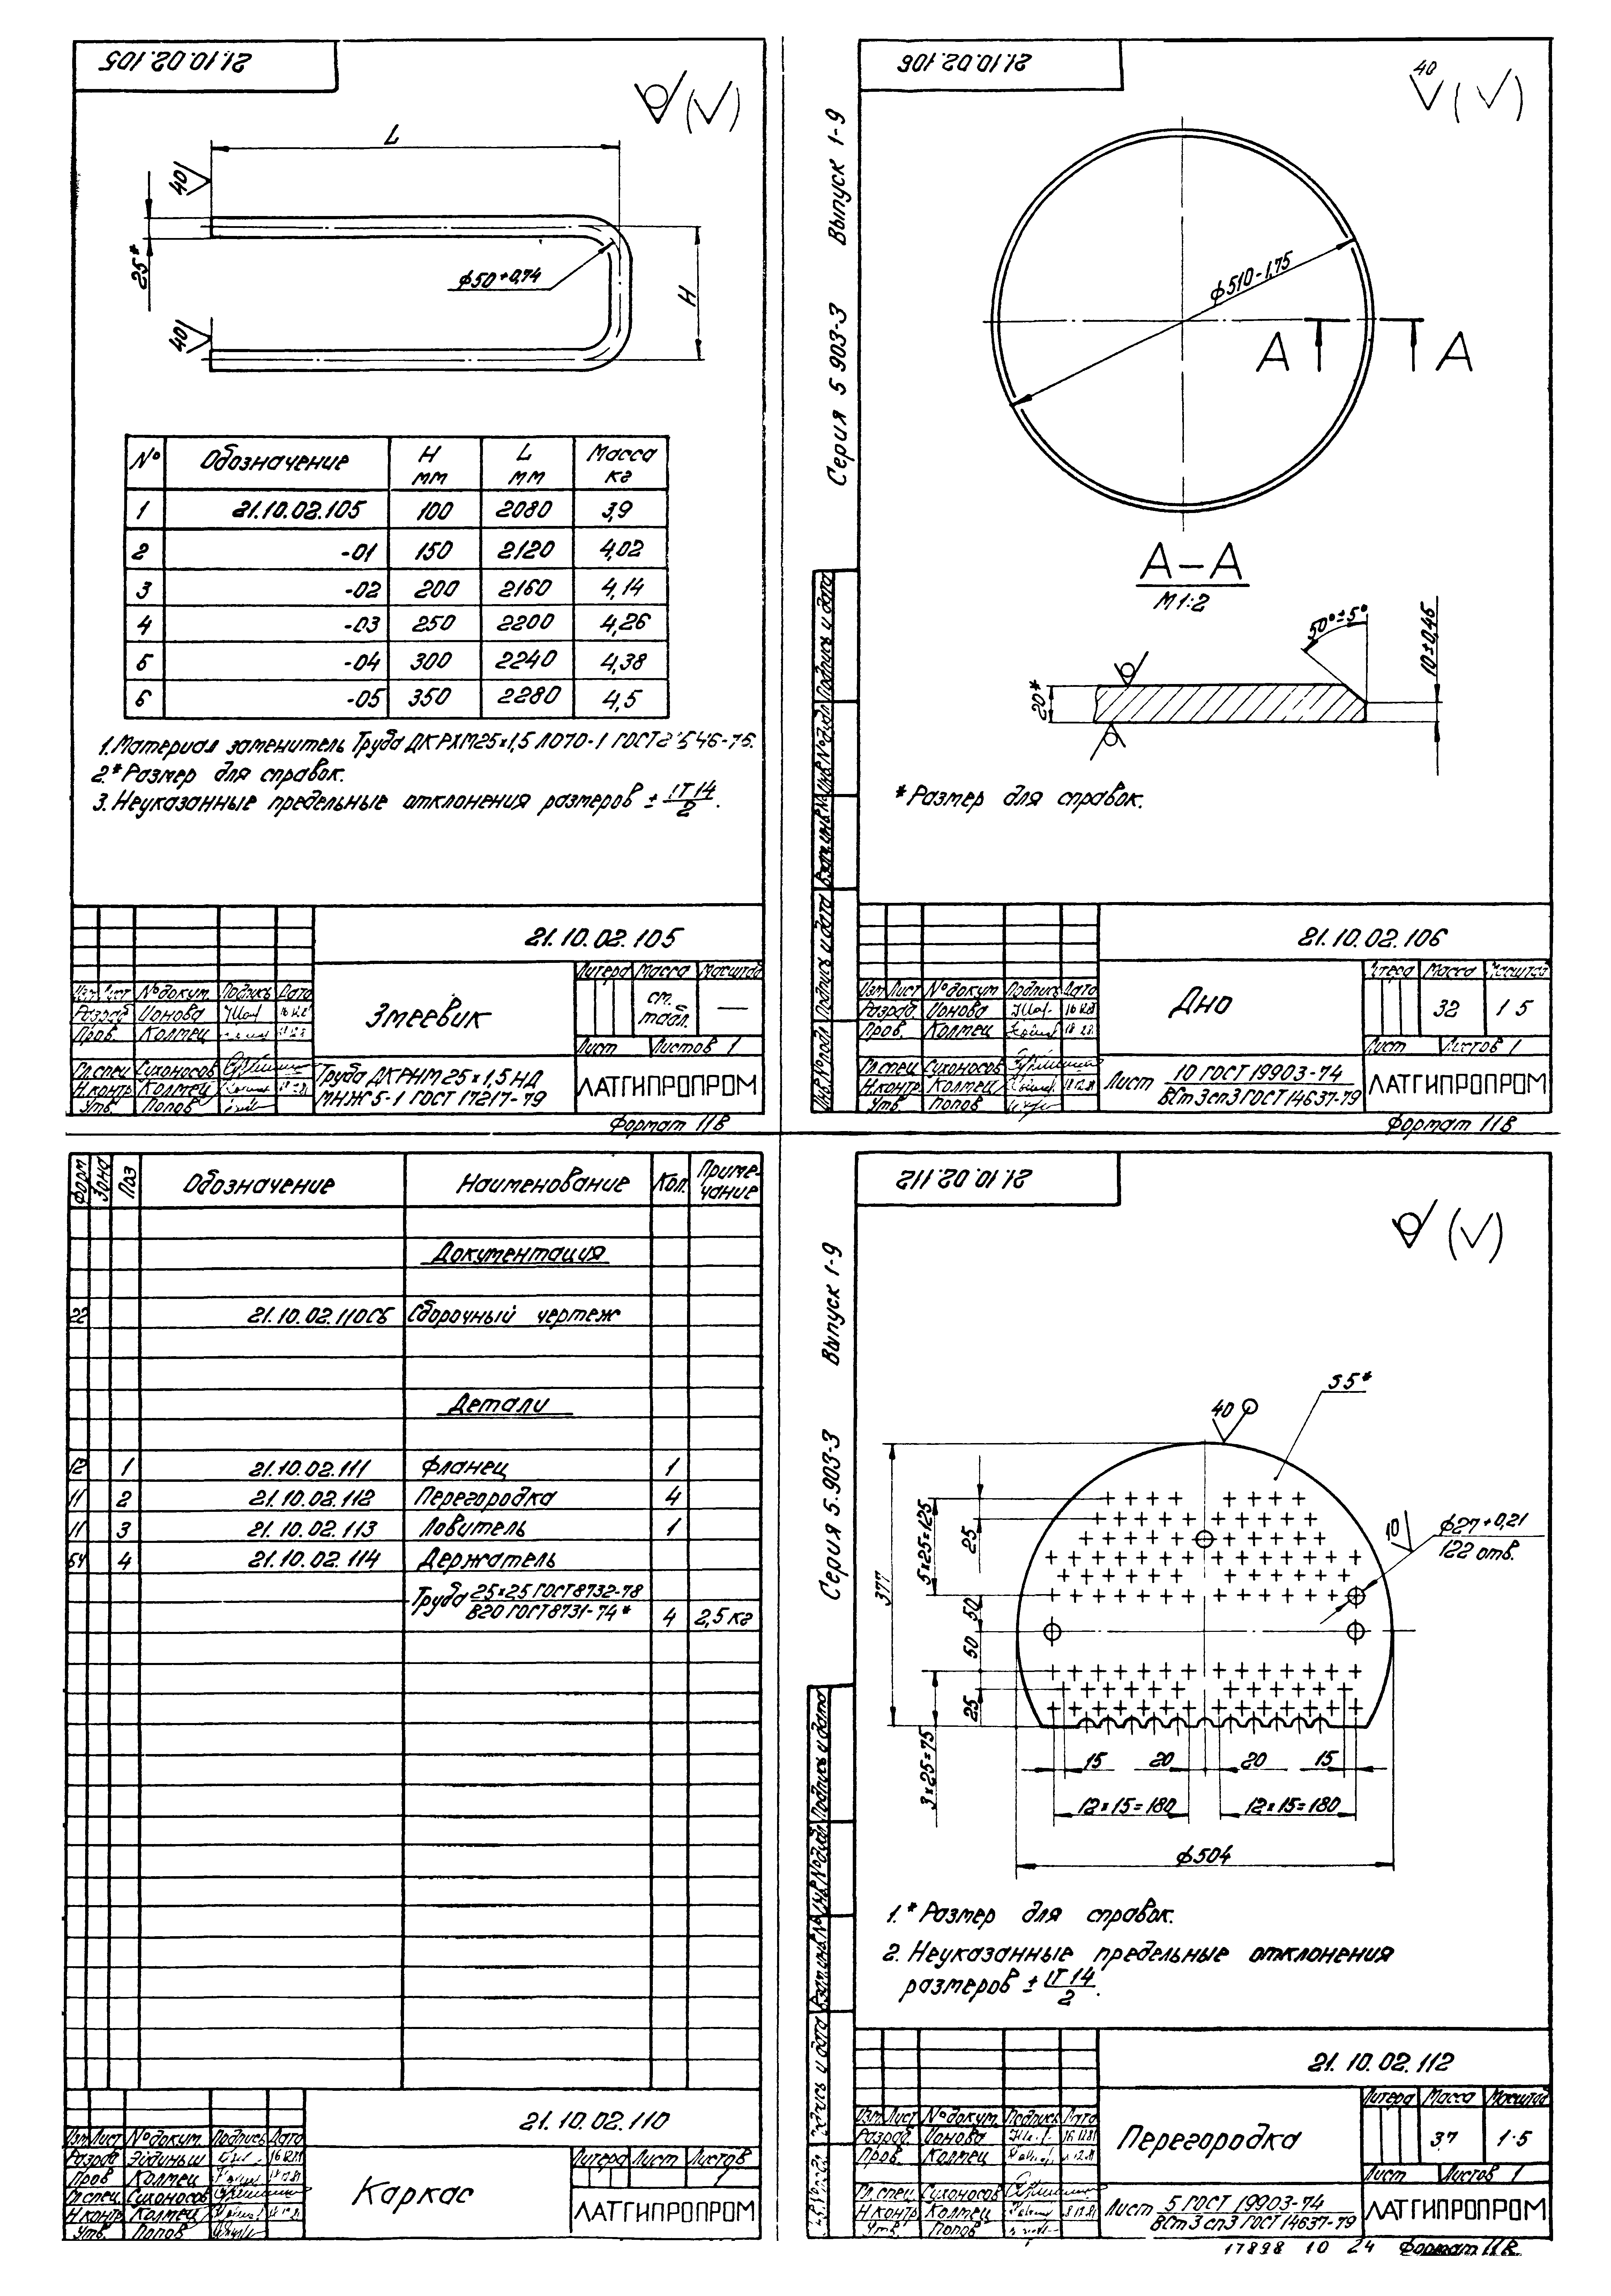 21.10.02.105
L
40
25*
ф50+0,74
H
40
№ Обозначение H мм L мм Масса кг
1 21.10.02.105 100 2080 3,9
2 -01 150 2120 4,02
3 -02 200 2160 4,14
4 -03 250 2200 4,26
5 -04 300 2240 4,38
6 -05 350 2280 4,5
1. Материал заменитель Труба ДКРХМ 25×1,5 ЛО70-1 ГОСТ 21646-76.
2.* Размер для справок.
3. Неуказанные предельные отклонения размеров ± IT14/2.
21.10.02.105
Литера Масса Масштаб
ст. табл. —
Изм Лист № докум. Подпись Дата
Разраб. Ионова 16.12.81
Пров. Колтец
Змеевик
Лист Листов 1
Гл.спец. Сухоносов
Н.контр. Колтец
Утв. Попов
Труба ДКРНМ 25×1,5 НД
МНЖ5-1 ГОСТ 17217-79
ЛАТГИПРОПРОМ
Формат 11В
21.10.02.106
40
Серия 5.903-3 Выпуск 1-9
ф510-1,75
А А
А-А
М1:2
50°±5°
20*
10±0,45
* Размер для справок.
Инв.№ подл. Подпись и дата Взам.инв.№ Инв.№ дубл. Подпись и дата
21.10.02.106
Литера Масса Масштаб
32 1:5
Изм Лист № докум. Подпись Дата
Разраб. Ионова 16.12.81
Пров. Колтец
Дно
Лист Листов 1
Гл.спец. Сухоносов
Н.контр. Колтец
Утв. Попов
Лист 10 ГОСТ 19903-74
ВСт3сп3 ГОСТ 14637-79
ЛАТГИПРОПРОМ
Формат 11В
Форм Зона Поз Обозначение Наименование Кол. Примечание
Документация
22 21.10.02.110СБ Сборочный чертеж
Детали
12 1 21.10.02.111 Фланец 1
11 2 21.10.02.112 Перегородка 4
11 3 21.10.02.113 Ловитель 1
БЧ 4 21.10.02.114 Держатель
Труба 25×2,5 ГОСТ 8732-78
В20 ГОСТ 8731-74* 4 2,5 кг
21.10.02.110
Изм Лист № докум. Подпись Дата
Разраб. Эйдиньш 16.12.81
Пров Колтец
Гл.спец. Сухоносов
Н.контр Колтец
Утв. Попов
Каркас
Литера Лист Листов
1
ЛАТГИПРОПРОМ
21.10.02.112
Серия 5.903-3 Выпуск 1-9
S5*
40
10
ф27+0,21
122 отв.
377
5×25=125
25
50
50
25
3×25=75
15 20 20 15
12×15=180 12×15=180
ф504
1.* Размер для справок.
2. Неуказанные предельные отклонения
размеров ± IT14/2.
Подпись и дата Взам.инв.№ Инв.№ дубл. Подпись и дата
21.10.02.112
Литера Масса Масштаб
37 1:5
Изм Лист № докум. Подпись Дата
Разраб. Ионова 16.12.81
Пров. Колтец
Перегородка
Лист Листов 1
Гл.спец. Сухоносов
Н.контр. Колтец
Утв. Попов
Лист 5 ГОСТ 19903-74
ВСт3сп3 ГОСТ 14637-79
ЛАТГИПРОПРОМ
17898 10 24 Формат 11В